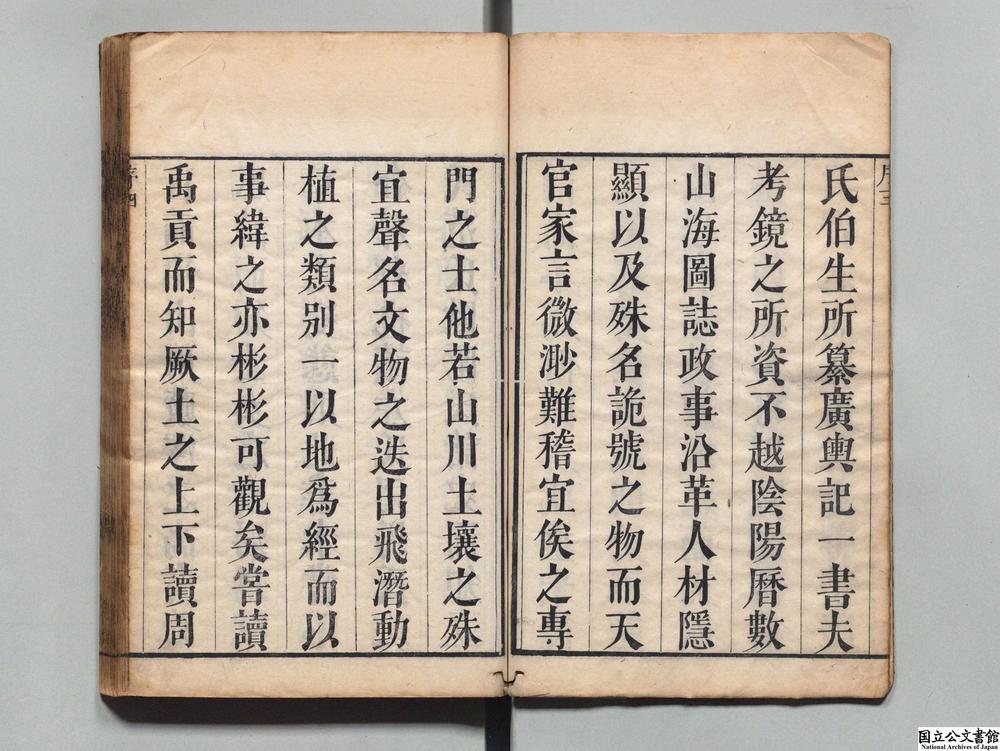 氏伯生所纂廣輿記一書夫
考鏡之所資不越陰陽曆數
山海圖誌政事沿革人材隱
顯以及殊名詭號之物而天
官家言微渺難稽宜俟之專
門之士他若山川土壤之殊
宜聲名文物之迭出飛潛動
植之類別一以地爲經而以
事緯之亦彬彬可觀矣嘗讀
禹貢而知厥土之上下讀周
序三
序四
国立公文書館
National Archives of Japan